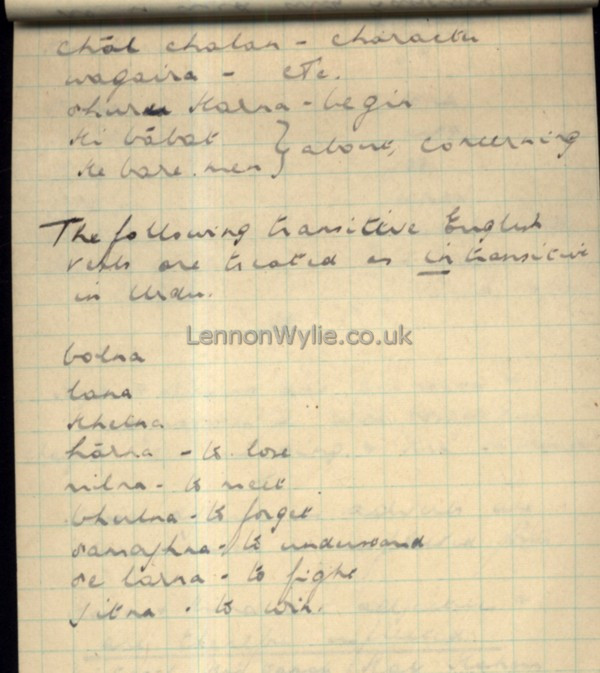 chāl chalan - character
wagaira - etc.
shuru karna - begin
ki bābat } about, concerning
ke bare. men
The following transitive English
verbs are treated as intransitive
in Urdu.
LennonWylie.co.uk
bolna
lana
khelna
hārna - to lose
milna - to meet
bhulna - to forget
samajhna - to understand
se larna - to fight
jitna - to win.